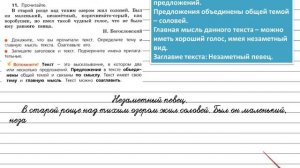 11. Прочитайте.
В старой роще над тихим озером жил соловей. Был
он маленький, незаметный,
И. Бенковский
Докажите, что вы прочитали текст. Определите тему и
главную мысль текста. Озаглавьте его.
Запишите заголовок и текст. Подчеркните имена прилага-
тельные.
Вспомните! Текст – это высказывание, в котором два
или несколько предложений. Предложения в тексте объеди-
нены общей темой и связаны по смыслу. Текст имеет свою
тему и главную мысль. Текст можно озаглавить.
предложений.
Предложения объединены общей темой
– соловей.
Главная мысль данного текста – можно
иметь хороший голос, имея незаметный
вид.
Заглавие текста: Незаметный певец.
Незаметный певец.
В старой роще над тихим озером жил соловей. Был он маленький,
неза